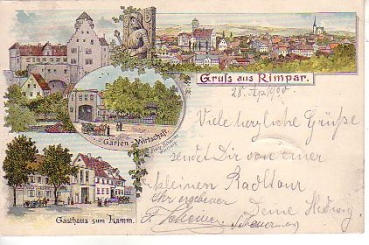 Gruss aus Rimpar.
28. Apr. 1900
Viele herzliche Grüße
sendet Dir von einer
kleinen Radtour
Ihr ergebener Deine Hedwig
Garten-Wirtschaft.
Gasthaus zum Lamm.